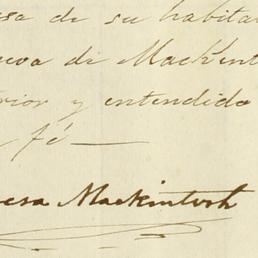 sa de su habita
de Mackint
rior y entendido
fé —
esa Mackintosh